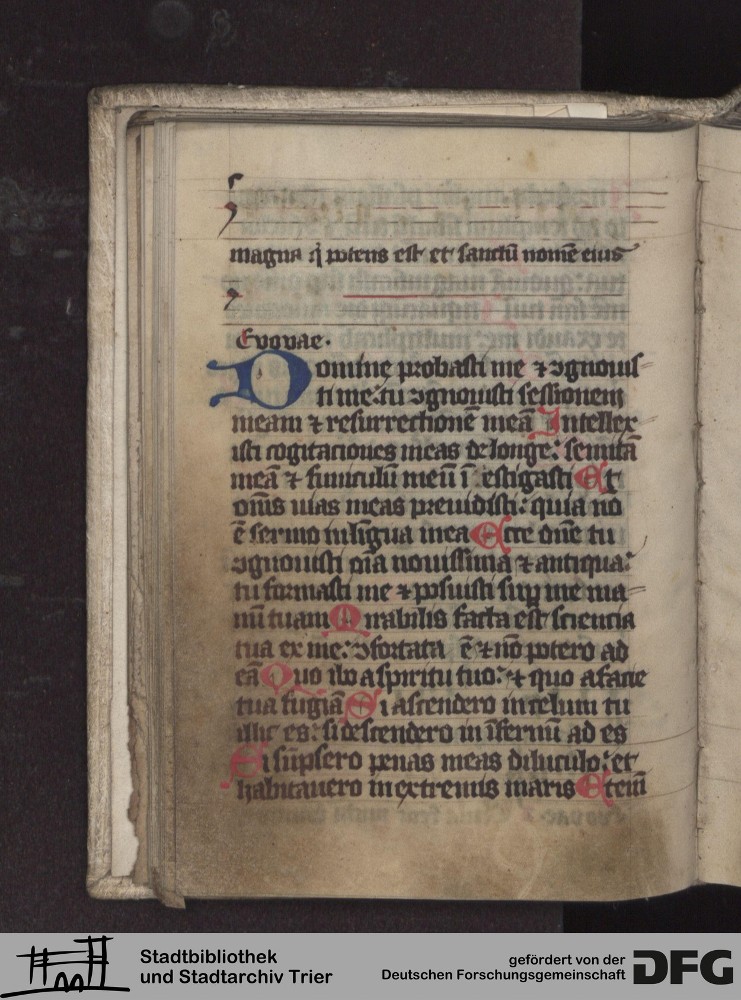 magna q̇ potens est et sanctū nomē eius
Euouae.
Domine probasti me ⁊ ꝯgnouis
ti me: tu ꝯgnouisti sessionem
meam ⁊ resurrectionē meā Intellex
isti cogitaciones meas de longe: semitā
meā ⁊ funiculū meū ī estigasti Et
om̄s uias meas preuidisti: quia nō
ē sermo in lingua mea Ecce dn̄e tu
ꝯgnouisti om̄ia nouissima ⁊ antiqua:
tu formasti me ⁊ posuisti sup me ma
nū tuam Mirabilis facta est sciencia
tua ex me: ꝯfortata ē ⁊ nō potero ad
eā Quo ibo a spiritu tuo: ⁊ quo a facie
tua fugiā Si ascendero in celum tu
illic es: si descendero in īfernū ad es
Si sūpsero penas meas diluculo: et
habitauero in extremis maris Etenī
Stadtbibliothek
und Stadtarchiv Trier
gefördert von der
Deutschen Forschungsgemeinschaft
DFG